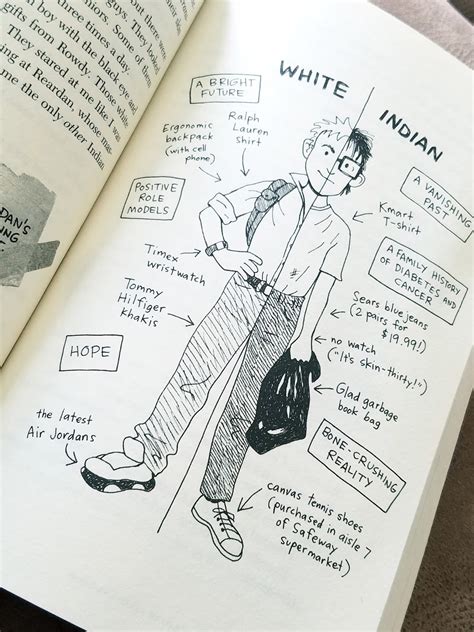 indians. They looked
juniors. Some of them
three times a day.
boy with the black eye and
gifts from Rowdy. Those white
They stared at me like I was
at Reardan, whose mas-
me the only other Indian
WHITE
INDIAN
A BRIGHT
FUTURE
Ergonomic
backpack
(with cell
phone)
Ralph
Lauren
shirt
POSITIVE
ROLE
MODELS
Timex
wristwatch
Tommy
Hilfiger
khakis
HOPE
the latest
Air Jordans
A VANISHING
PAST
Kmart
T-shirt
A FAMILY HISTORY
OF DIABETES AND
CANCER
Sears blue jeans
(2 pairs for
$19.99!)
no watch
("It's skin-thirty!")
Glad garbage
book bag
BONE-CRUSHING
REALITY
canvas tennis shoes
(purchased in aisle 7
of Safeway
supermarket)